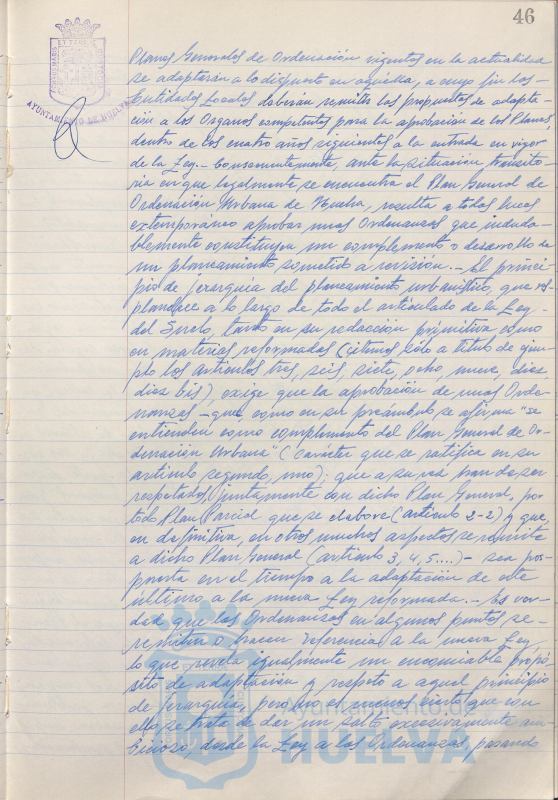 46
AYUNTAMIENTO DE HUELVA
Planes Generales de Ordenación vigentes en la actualidad
se adaptarán a lo dispuesto en aquella, a cuyo fin las
Entidades Locales deberán remitir las propuestas de adapta-
ción a los Organos competentes para la aprobación de los Planes
dentro de los cuatro años siguientes a la entrada en vigor
de la Ley.- Consecuentemente, ante la situación transito-
ria en que legalmente se encuentra el Plan General de
Ordenación Urbana de Huelva, resulta a todas luces
extemporáneo aprobar unas Ordenanzas que induda-
blemente constituyen un complemento o desarrollo de
un planeamiento sometido a revisión.- El princi-
pio de jerarquía del planeamiento urbanístico, que res-
plandece a lo largo de todo el articulado de la Ley
del Suelo, tanto en su redacción primitiva como
en materias reformadas (citemos sólo a título de ejem-
plo los artículos tres, seis, siete, ocho, nueve, diez
diez bis), exige que la aprobación de unas Orde-
nanzas - que, como en su preámbulo se afirma "se
entienden como complemento del Plan General de Or-
denación Urbana" (carácter que se ratifica en su
artículo segundo, uno); que a su vez han de ser
respetadas, juntamente con dicho Plan General, por
todo Plan Parcial que se elabore (artículo 2-2) y que
en definitiva, en otros muchos aspectos se remite
a dicho Plan General (artículo 3, 4, 5....) - sea pos-
puesta en el tiempo a la adaptación de este
último a la nueva Ley reformada.- Es ver-
dad que las Ordenanzas en algunos puntos se
remiten o hacen referencia a la nueva Ley,
lo que revela igualmente un innegable propó-
sito de adaptación y respeto a aquel principio
de jerarquía, pero no es menos cierto que con
ello se trata de dar un salto excesivamente am-
bicioso, desde la Ley a las Ordenanzas, pasando
Ayuntamiento de
HUELVA